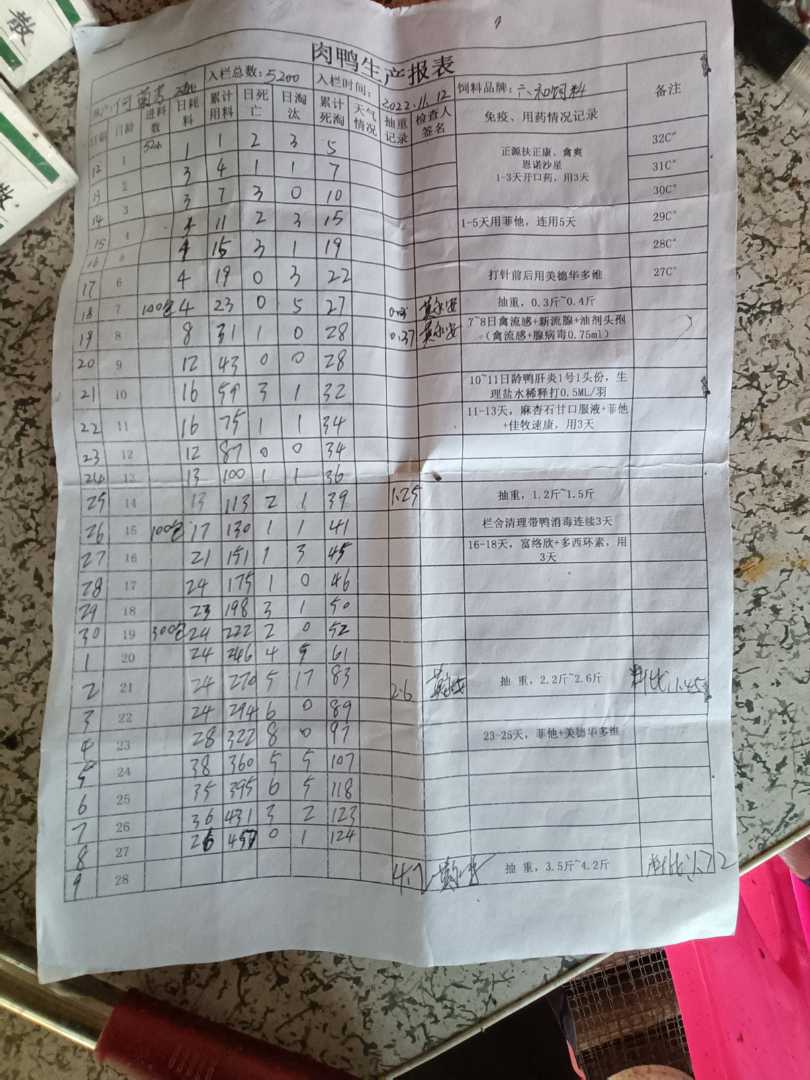 肉鸭生产报表
入栏总数：5200 入栏时间：2022.11.12 饲料品牌：六和饲料 备注
日龄 进料数 日耗料 累计用料 日死亡 日淘汰 累计死淘 天气情况 抽重记录 检查人签名 免疫、用药情况记录
12 1 1 1 2 3 5 正源扶正康、禽爽 恩诺沙星 1-3天开口药，用3天 32C°
13 2 3 4 1 1 7 31C°
14 3 3 7 3 0 10 30C°
15 4 4 11 2 3 15 1-5天用菲他，连用5天 29C°
16 5 4 15 3 1 19 28C°
17 6 4 19 0 3 22 打针前后用美德华多维 27C°
18 7 100包 4 23 0 5 27 抽重，0.3斤~0.4斤
19 8 8 31 1 0 28 0.37 7~8日禽流感+新流腺+油剂头孢（禽流感+腺病毒0.75ml）
20 9 12 43 0 0 28
21 10 16 59 3 1 32 10~11日龄鸭肝炎1号1头份，生理盐水稀释打0.5ML/羽
22 11 16 75 1 1 34 11-13天，麻杏石甘口服液+菲他+佳牧速康，用3天
23 12 12 87 0 0 34
24 13 13 100 1 1 36
25 14 13 113 2 1 39 1.25 抽重，1.2斤~1.5斤
26 15 100包 17 130 1 1 41 栏舍清理带鸭消毒连续3天
27 16 21 151 1 3 45 16-18天，富络欣+多西环素，用3天
28 17 24 175 1 0 46
29 18 23 198 3 1 50
30 19 300包 24 222 2 0 52
1 20 24 246 4 5 61
2 21 24 270 5 17 83 2.6 抽 重，2.2斤~2.6斤 料比1.45
3 22 24 294 6 0 89
4 23 28 322 8 0 97 23-25天，菲他+美德华多维
5 24 38 360 5 5 107
6 25 35 395 6 5 118
7 26 36 431 3 2 123
8 27 26 457 0 1 124
9 28 4.2 抽 重，3.5斤~4.2斤 料比1.72